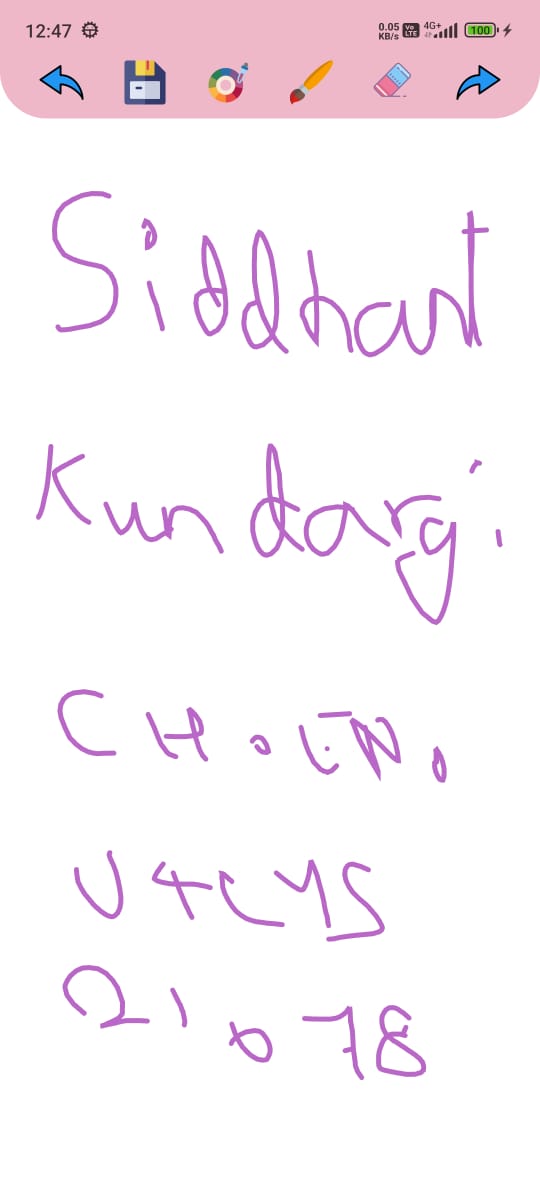 12:47 0.05 KB/s Vo LTE 4G+ 100
Siddhant
Kundargi
CH.EN.
U4CYS
21078